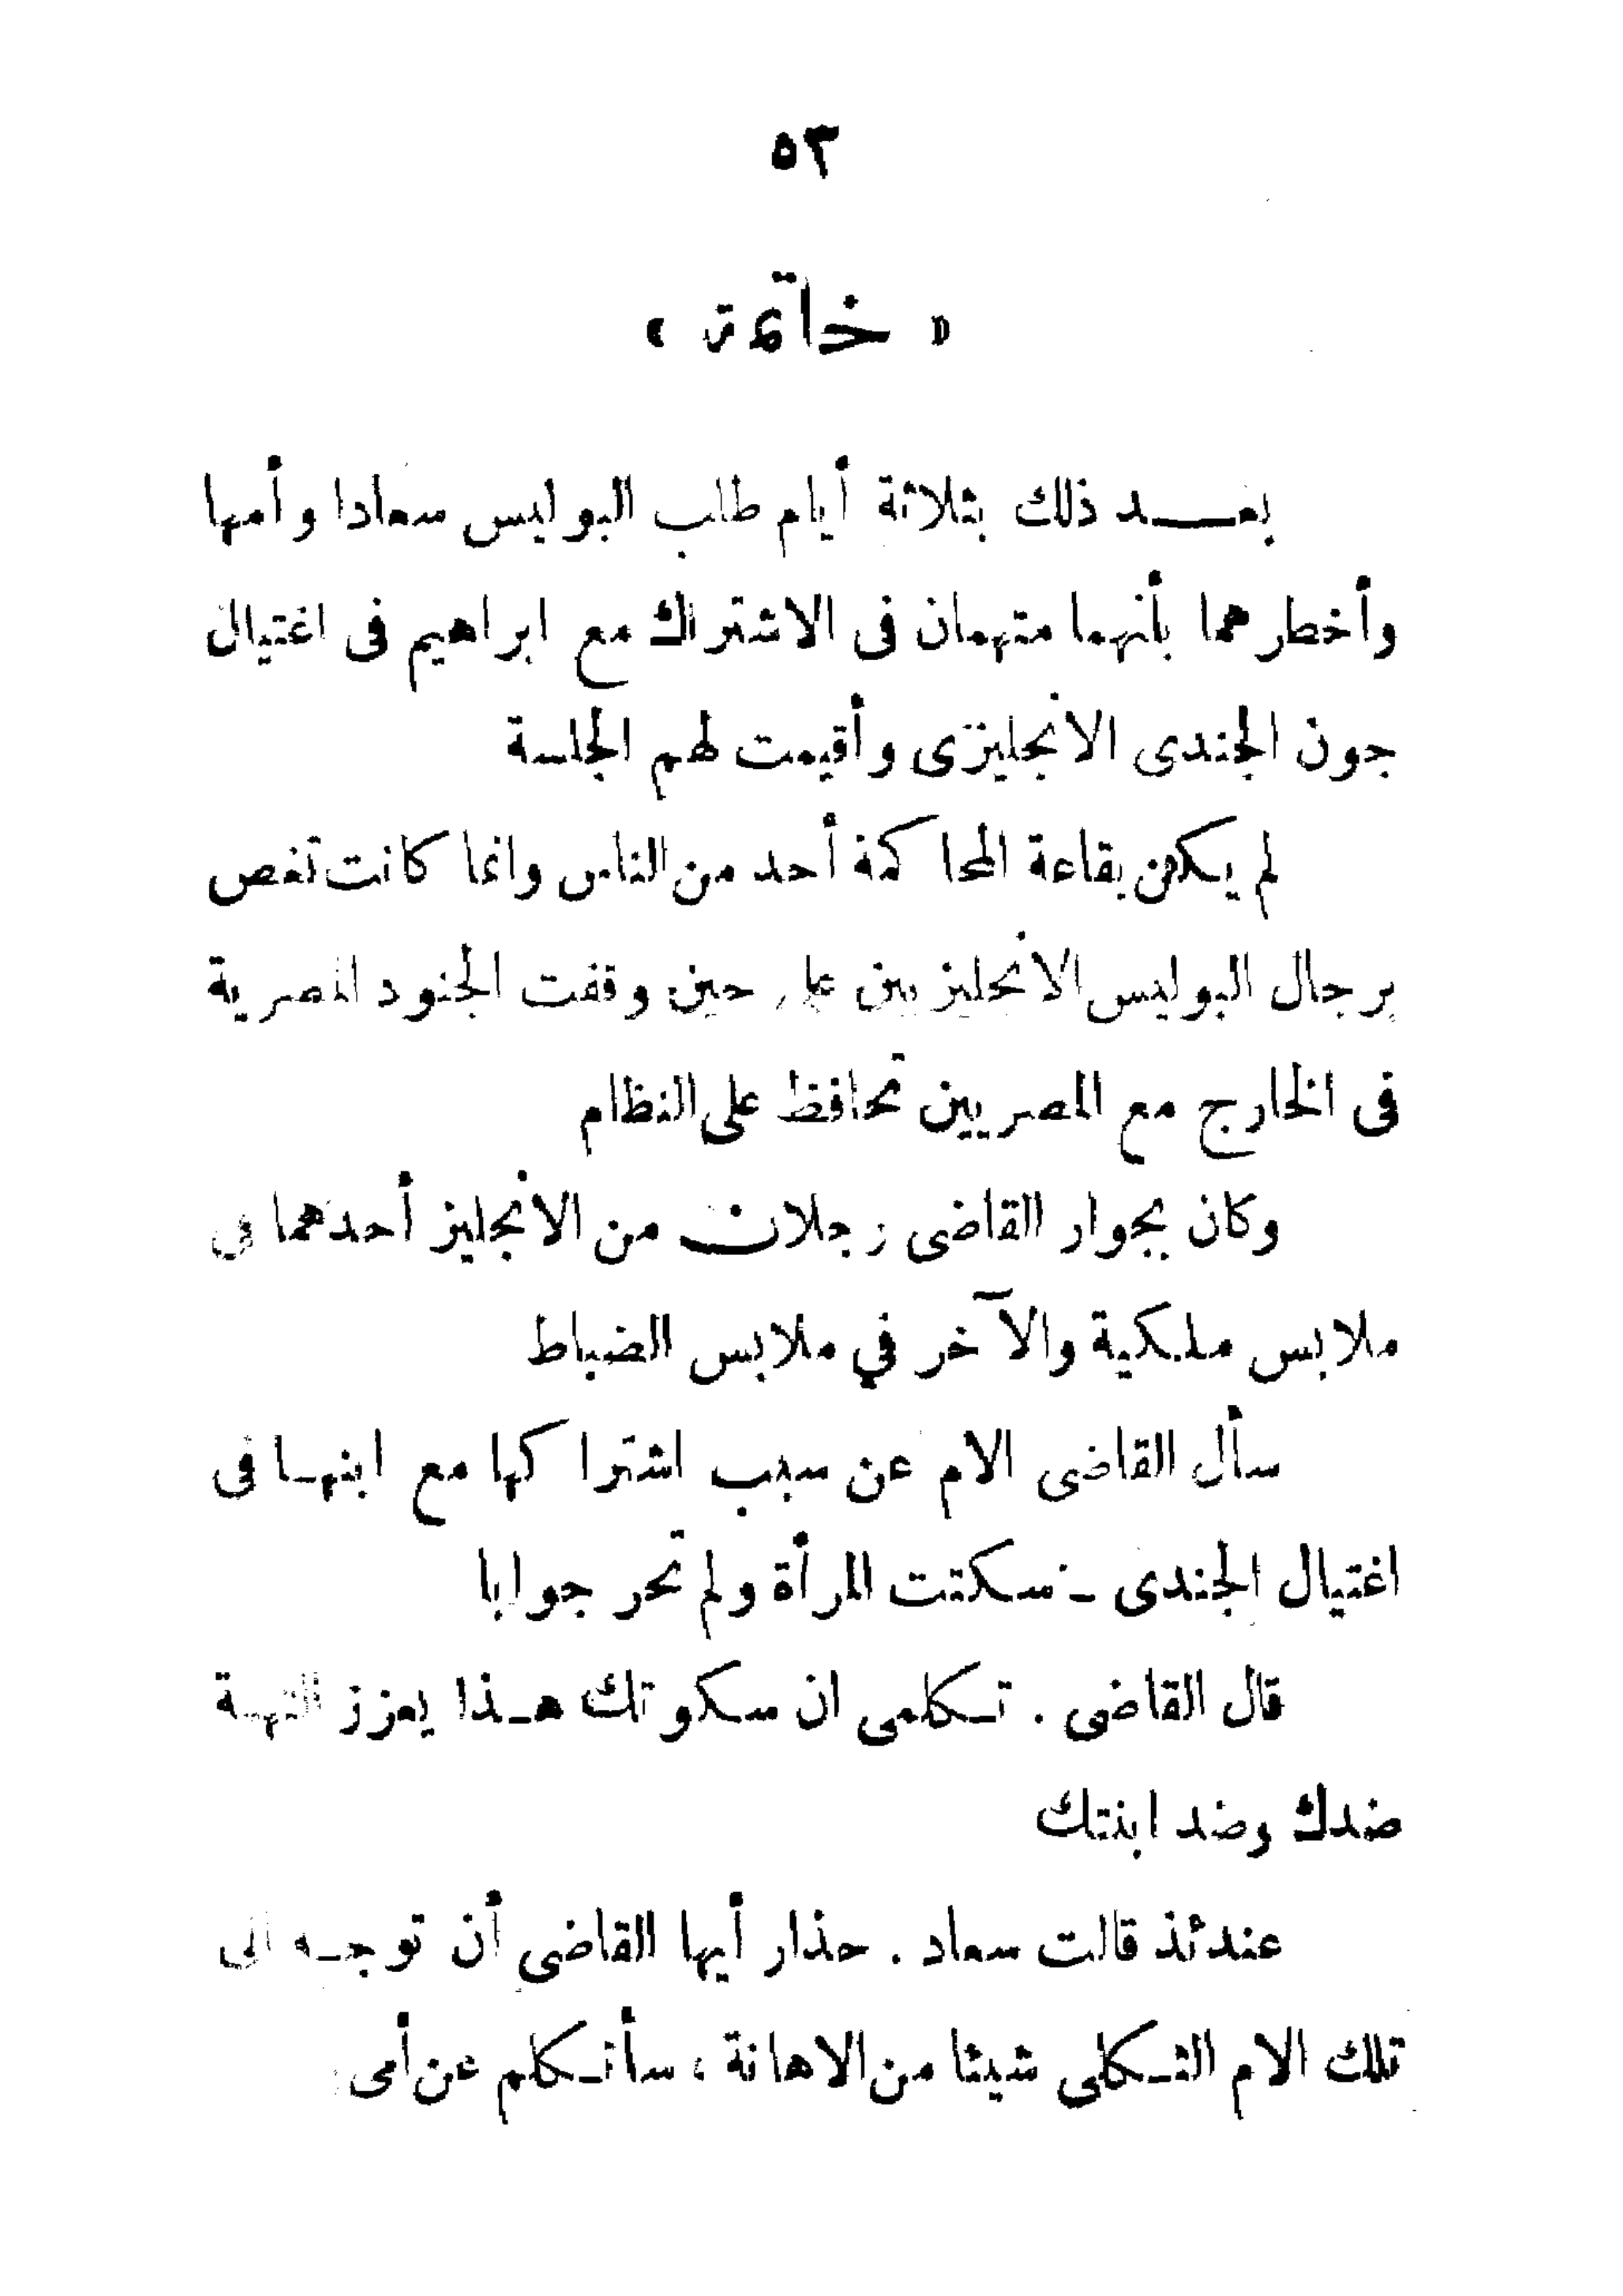 ٥٣
« خاتمة »
بعد ذلك بثلاثة أيام طلب البوليس سعادا وأمها
وأخطرهما بأنهما متهمان فى الاشتراك مع ابراهيم فى اغتيال
جون الجندى الانجليزى وأقيمت لهم الجلسة
لم يكن بقاعة المحاكمة أحد من الناس وانما كانت تغص
برجال البوليس الانجليز بين على حين وقفت الجنود المصرية
فى الخارج مع المصريين تحافظ على النظام
وكان بجوار القاضى رجلان من الانجليز أحدهما فى
ملابس ملكية والآخر في ملابس الضباط
سأل القاضى الام عن سبب اشتراكها مع ابنها فى
اغتيال الجندى - فسكتت المرأة ولم تحر جوابا
قال القاضى . تكلمى ان سكوتك هذا يعزز التهمة
ضدك وضد ابنتك
عندئذ قالت سعاد . حذار أيها القاضى أن توجه الى
تلك الام الثكلى شيئا من الاهانة ، سأتكلم عن أمى